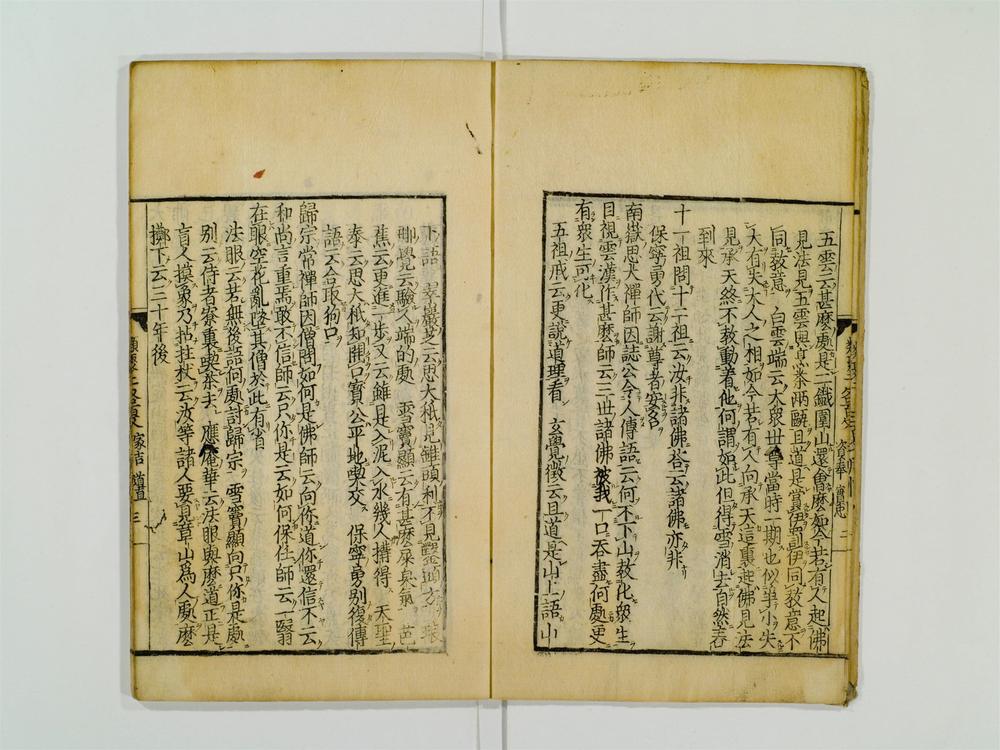 五雲云甚麽處是二鐵圍山還會麽如今若有人起佛
見法見五雲與烹茶兩甌且道是賞伊罰伊同教意不
同教意　白雲端云大衆世尊當時一期也似爭小失
大有失大人之相如今若有人向承天這裏起佛見法
見承天終不教動著他何謂如此但得雪消去自然春
到來
十一祖問十二祖云汝非諸佛荅云諸佛亦非
保寧勇代云謝尊者安名
南嶽思大禪師因誌公令人傳語云何不下山教化衆生
目視雲漢作甚麽師云三世諸佛被我一口吞盡何處更
有衆生可化
五祖戒云更說道理看　玄覺徵云且道是山上語山
下語　翠巖芝云思大秖見錐頭利不見鑿頭方　瑯
瑘覺云驗人端的處　雪竇顯云有甚麽屎臭氣　芭
蕉云更進一步又云錐是入泥入水幾人搆得　天聖
泰云思大秖知開口寶公平地喫交　保寧勇別復傳
語云合取狗口
歸宗常禪師因僧問如何是佛師云向你道你還信不云
和尚言重焉敢不信師云只你是云如何保任師云一翳
在眼空花亂墜其僧於此有省
法眼云若無後語何處討歸宗　雪竇顯向只你是處
別云侍者寮裏喫茶去　應庵華云法眼與麽道正是
盲人摸象乃拈拄杖云汝等諸人要見章山爲人處麽
擲下云三十年後